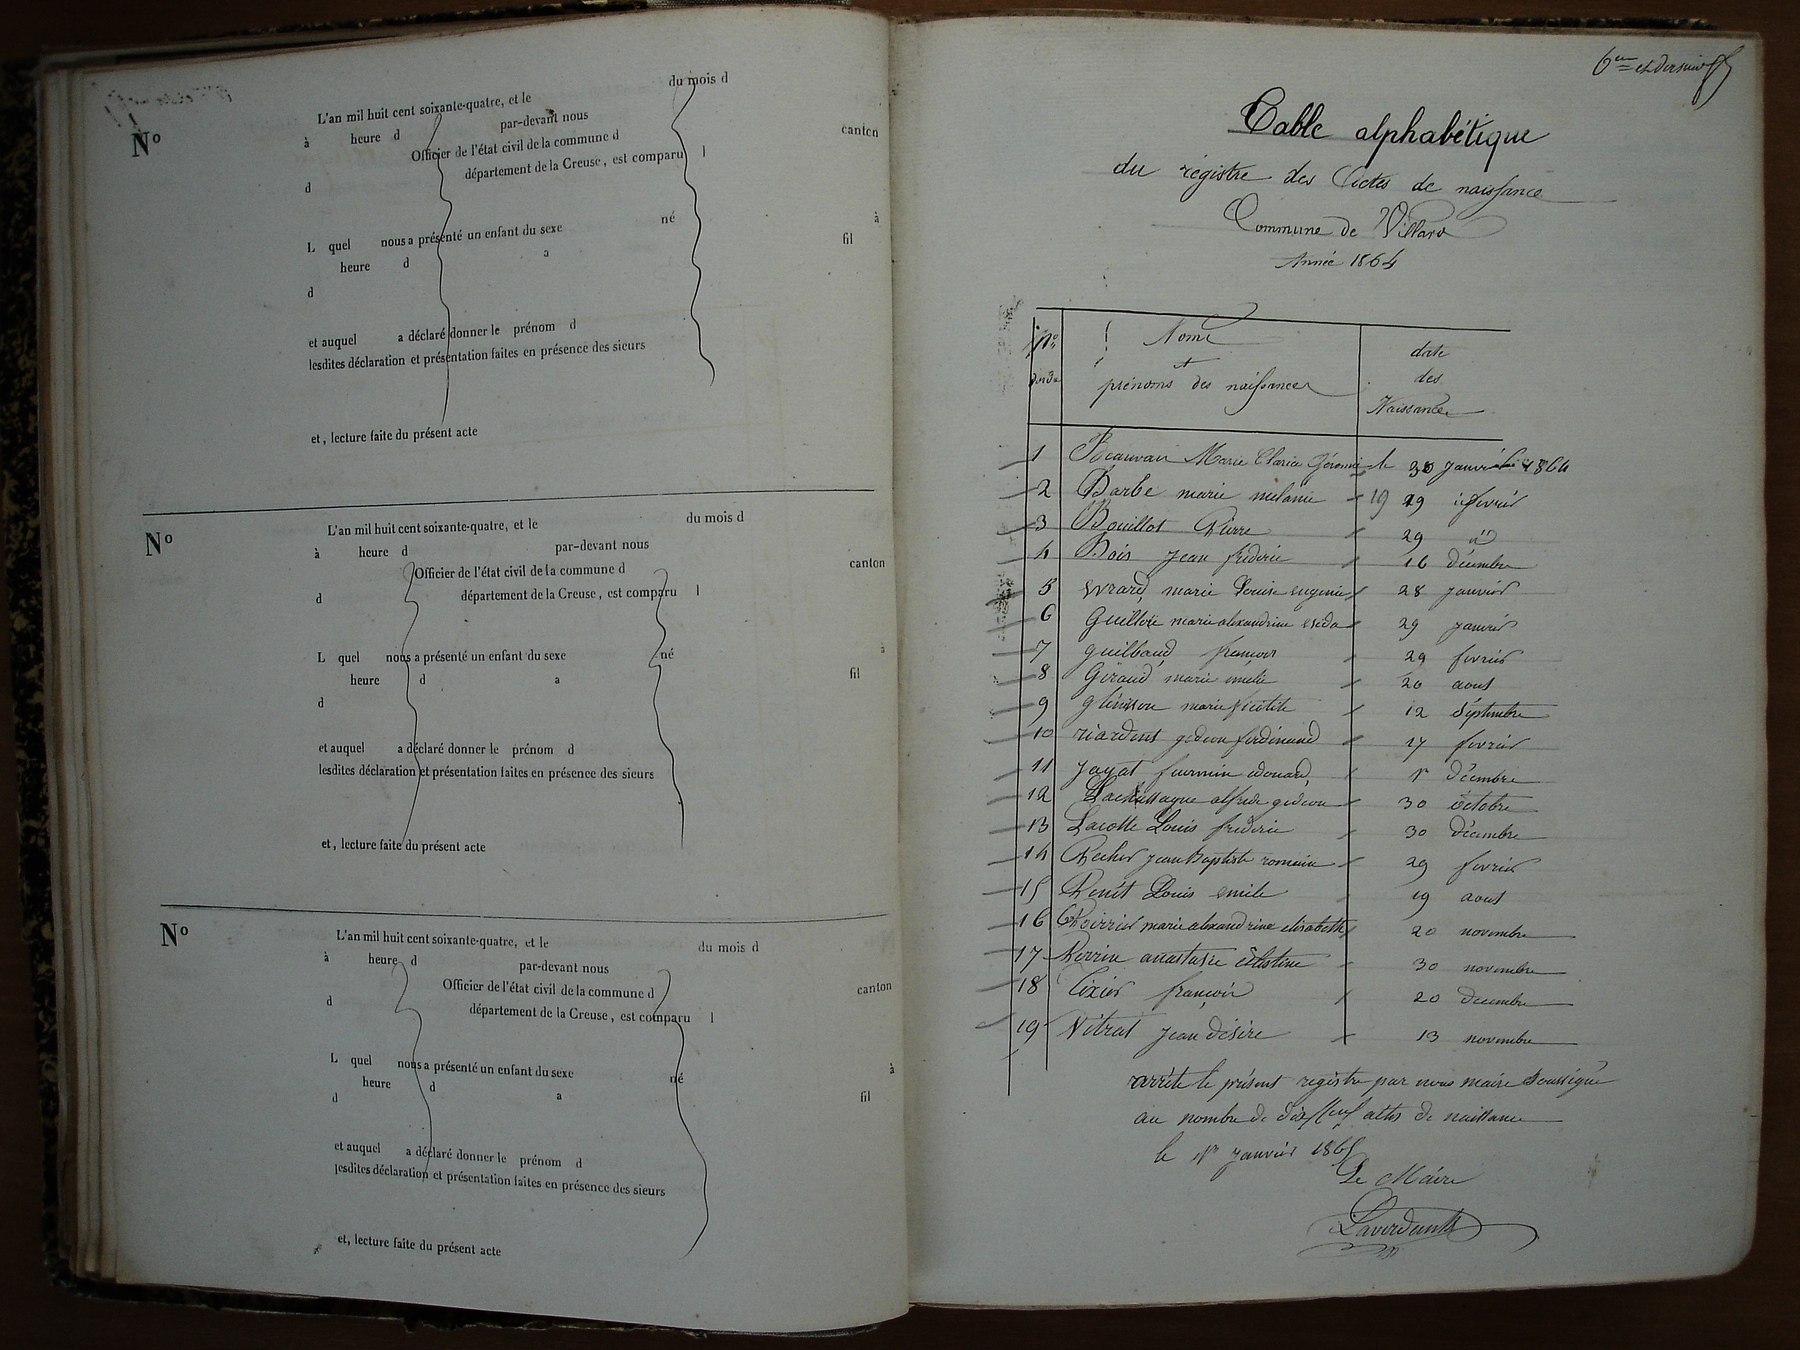 du mois d
L'an mil huit cent soixante-quatre, et le
No
à heure d par-devant nous
Officier de l'état civil de la commune d canton
d département de la Creuse, est comparu l
L quel nous a présenté un enfant du sexe né à
heure d a fil
d
et auquel a déclaré donner le prénom d
lesdites déclaration et présentation faites en présence des sieurs
et, lecture faite du présent acte
No
L'an mil huit cent soixante-quatre, et le du mois d
à heure d par-devant nous
Officier de l'état civil de la commune d canton
d département de la Creuse, est comparu l
L quel nous a présenté un enfant du sexe né à
heure d a fil
d
et auquel a déclaré donner le prénom d
lesdites déclaration et présentation faites en présence des sieurs
et, lecture faite du présent acte
No
L'an mil huit cent soixante-quatre, et le du mois d
à heure d par-devant nous
Officier de l'état civil de la commune d canton
d département de la Creuse, est comparu l
L quel nous a présenté un enfant du sexe né à
heure d a fil
d
et auquel a déclaré donner le prénom d
lesdites déclaration et présentation faites en présence des sieurs
et, lecture faite du présent acte
6me et dernier
Table alphabétique
du régistre des Actes de naissance
Commune de Villard
Année 1864
Nos Noms date
et des
prénoms des naissances Naissances
1 Beauvais Marie Claria le 30 janvier 1864
2 Barbe marie melanie 19 19 fevrier
3 Bouillot Pierre 29 id
4 Bois jean frederic 16 décembre
5 evrard marie Louise eugenie 28 janvier
6 Guillon marie alexandrine 29 janvier
7 guilbaud françois 29 fevrier
8 Giraud marie 20 aout
9 marie 12 septembre
10 riardent gedeon ferdinand 17 fevrier
11 jayat edouard 1r décembre
12 Lachassagne alfred gedeon 30 octobre
13 Lacotte Louis frederic 30 décembre
14 jean Baptiste romain 29 fevrier
15 Louis emile 19 aout
16 marie alexandrine elisabeth 20 novembre
17 Perrin anastasie célestine 30 novembre
18 Tixier françois 20 decembre
19 Vitrat jean désiré 13 novembre
arrêté le présent registre par nous maire soussigné
au nombre de dix neuf actes de naissance
le 1er janvier 1865
Le Maire